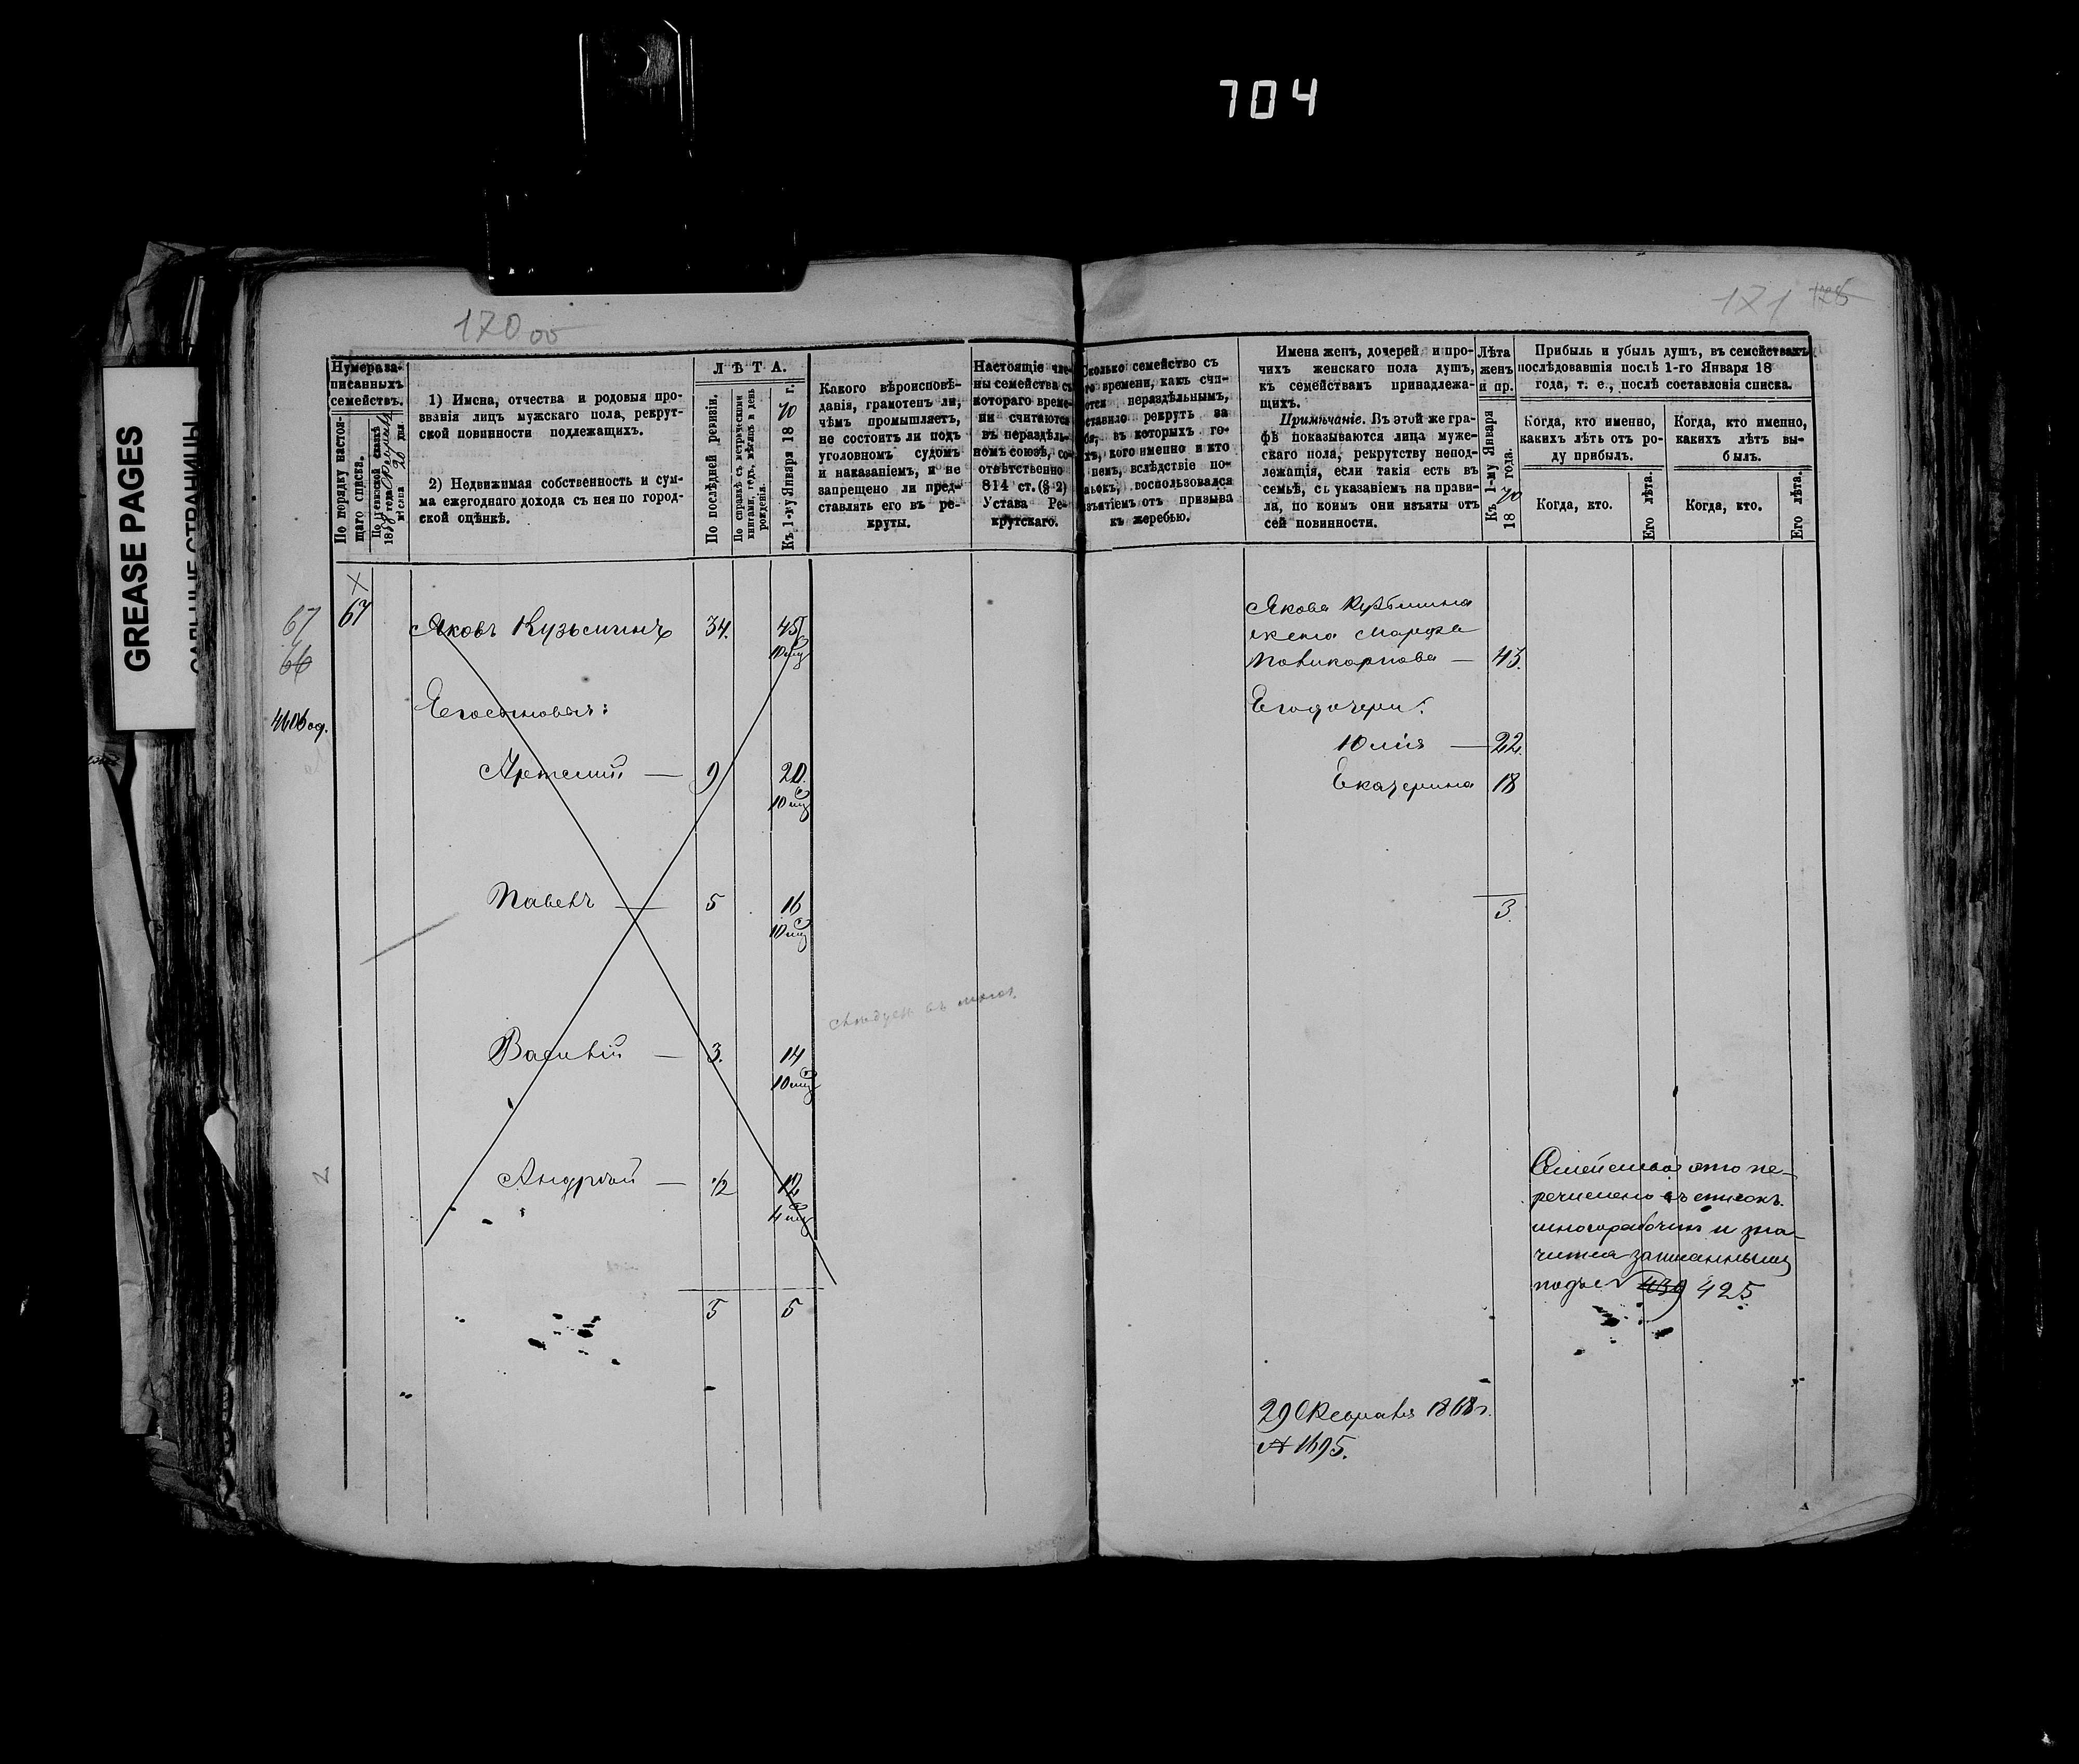 704
GREASE PAGES
САЛЬНЫЕ СТРАНИЦЫ
170 об
171 178
Нумера за-
писанныхъ
семействъ.
По порядку настоя-
щаго списка.
По ревизской сказкѣ
185 года
мѣсяца 20 дня.
1) Имена, отчества и родовыя про-
званія лицъ мужскаго пола, рекрут-
ской повинности подлежащихъ.
2) Недвижимая собственность и сум-
ма ежегоднаго дохода съ нея по город-
ской оцѣнкѣ.
ЛѢТА.
По послѣдней ревизіи.
По справкѣ съ метрическими
книгами, годъ, мѣсяцъ и день
рожденія.
Къ 1-му Января 1870 г.
Какого вѣроисповѣ-
данія, грамотенъ ли,
чѣмъ промышляетъ,
не состоитъ ли подъ
уголовномъ судомъ
и наказаніемъ, и не
запрещено ли пред-
ставлять его въ ре-
круты.
Настоящіе чле-
ны семейства съ
котораго време-
ни считаются
въ нераздѣль-
номъ союзѣ, со-
отвѣтственно
814 ст. (§ 2)
Устава Ре-
крутскаго.
Сколько семейство съ
го времени, какъ счи-
ется нераздѣльнымъ,
ставило рекрутъ за
бя, въ которыхъ го-
хъ, кого именно и кто
немъ, вслѣдствіе по-
воспользовался
изъятіемъ отъ призыва
къ жеребью.
Имена женъ, дочерей и про-
чихъ женскаго пола душъ,
къ семействамъ принадлежа-
щихъ.
Примѣчаніе. Въ этой же гра-
фѣ показываются лица муже-
скаго пола, рекрутству непод-
лежащія, если такія есть въ
семьѣ, съ указаніемъ на прави-
ла, по коимъ они изъяты отъ
сей повинности.
Лѣта
женъ
и пр.
Къ 1-му Января
1870 года.
Прибыль и убыль душъ, въ семействахъ
послѣдовавшія послѣ 1-го Января 18
года, т. е., послѣ составленія списка.
Когда, кто именно,
какихъ лѣтъ отъ ро-
ду прибылъ.
Когда, кто именно,
какихъ лѣтъ вы-
былъ.
Когда, кто.
Его лѣта.
Когда, кто.
Его лѣта.
67
66
67
Яковъ Кузьминъ 34. 45
10 мц
Его сыновья:
Артемий — 9 20.
10 мц
Павелъ — 5 16
10 мц
Василій — 3. 14
10 мц
Андрѣй — 1/2 12
4 мц
5 5
Якова Кузьмина
жена Марфа
Поликарпова — 43.
Его дочери:
Юлія — 22.
Екатерина 18
3.
Семейство это пе-
речислено въ списокъ
многорабочихъ и зна-
чится записаннымъ
подъ № 425
29 Февраля 1868 г.
№ 1695.